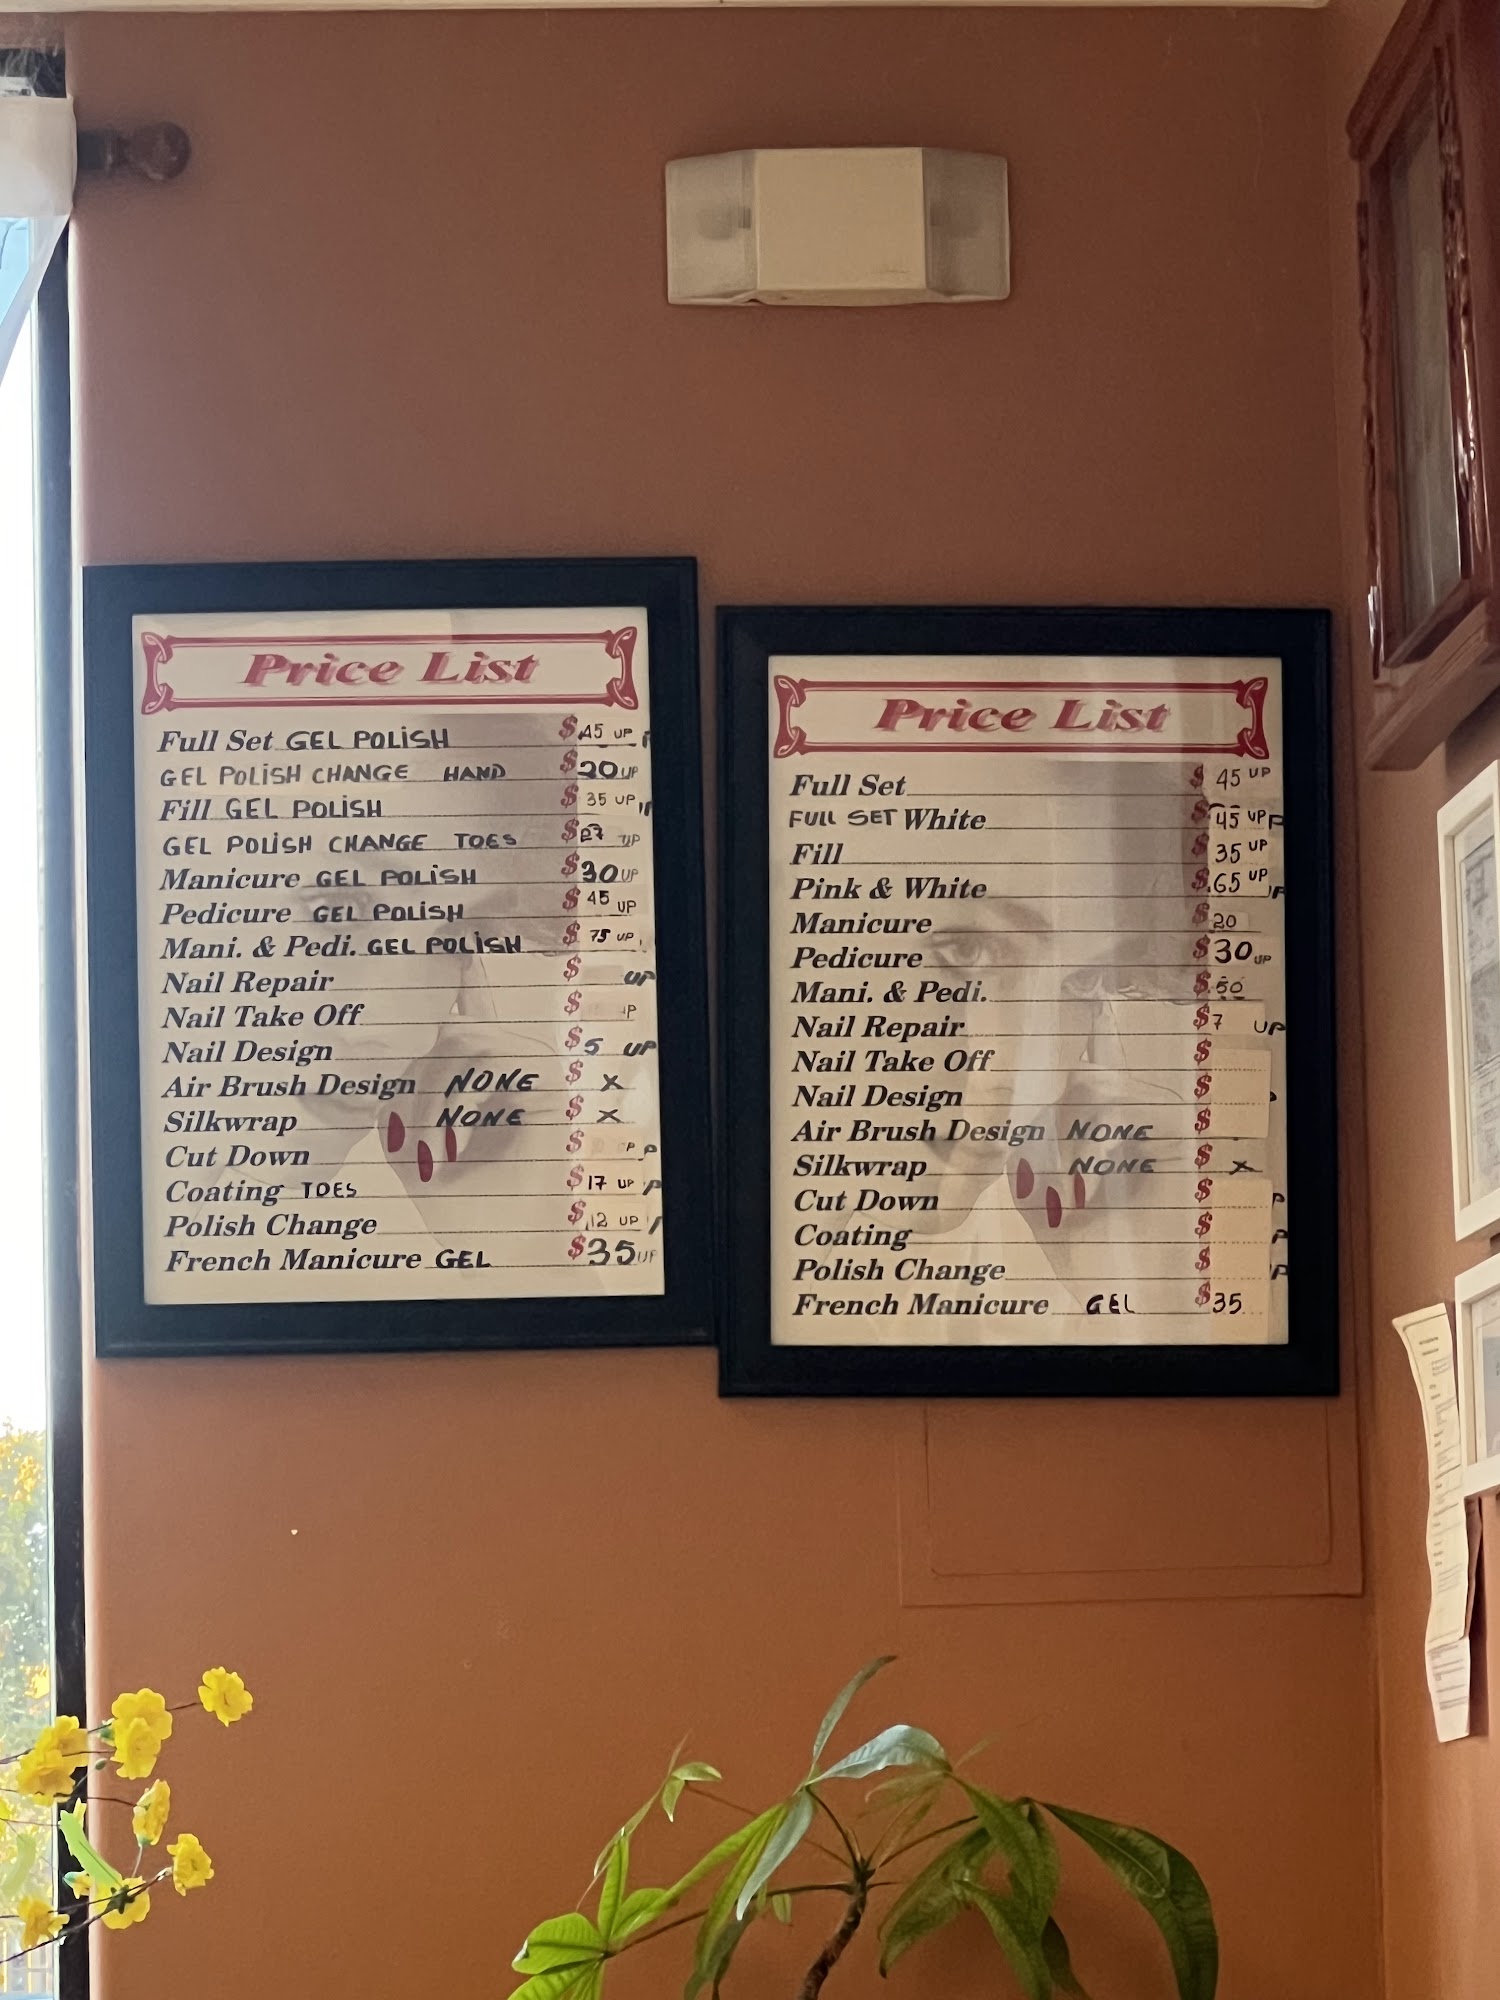 Price List
Full Set GEL POLISH $45 UP
GEL POLISH CHANGE HAND $20 UP
Fill GEL POLISH $35 UP
GEL POLISH CHANGE TOES $27 UP
Manicure GEL POLISH $30 UP
Pedicure GEL POLISH $45 UP
Mani. & Pedi. GEL POLISH $75 UP
Nail Repair $ UP
Nail Take Off $
Nail Design $5 UP
Air Brush Design NONE $ X
Silkwrap NONE $ X
Cut Down $
Coating TOES $17 UP
Polish Change $12 UP
French Manicure GEL $35 UP
Price List
Full Set $45 UP
FULL SET White $45 UP
Fill $35 UP
Pink & White $65 UP
Manicure $20
Pedicure $30 UP
Mani. & Pedi. $50
Nail Repair $7 UP
Nail Take Off $
Nail Design $
Air Brush Design NONE $
Silkwrap NONE $ X
Cut Down $
Coating $
Polish Change $
French Manicure GEL $35